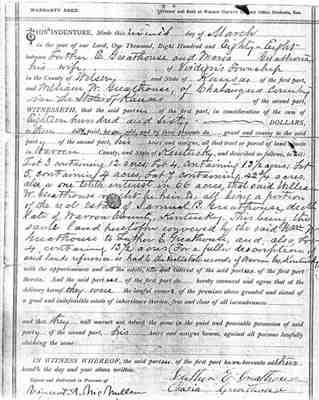 WARRANTY DEED.
THIS INDENTURE, Made this day of March
in the year of our Lord, One Thousand, Eight Hundred and Eighty-Eight
between Luther E. Greathouse and Maria Greathouse
his wife of Township
in the County of Wilson and State of Kansas of the first part,
and William W. Greathouse, of Chatauqua County
in the State of Kansas of the second part,
WITNESSETH, that the said part of the first part, in consideration of the sum of
Eighteen hundred and Sixty DOLLARS, to
them grant and convey to the said
part of the second part, heirs and assigns, all that tract or parcel of land situate
in Warren County, and State of Kentucky, and described as follows, to wit:
Lot 3 containing 12 acres, lot 4, containing 13 ¾ acres, lot
5, containing 4 acres, lot 7 containing 42 ¾ acres
also a one tenth interest in 66 acres, that said William
W. Greathouse to him, all being a portion
of the real estate of Samuel R. Greathouse, dec'd
late of Warren County, Kentucky. This being the
same land heretofore conveyed by the said Wm. W.
Greathouse to Luther E. Greathouse, and also lot
containing 13 ¾ acres. For a full description of
said lands reference is had to the records of Warren Co. Kentucky
with the appurtenances and all the estate, title and interest of the said parties of the first part
therein. And the said parties of the first part do hereby covenant and agree that at the
delivery hereof they were the lawful owners of the premises above granted and seized of
a good and indefeasible estate of inheritance therein, free and clear of all incumbrances
and that they will warrant and defend the same in the quiet and peaceable possession of said
party of the second part, his heirs and assigns forever, against all persons lawfully claiming
the same.
IN WITNESS WHEREOF, the said parties of the first part have hereunto set their
hands the day and year above written.
Signed and delivered in Presence of
McMullen
Luther E. Greathouse
Maria Greathouse